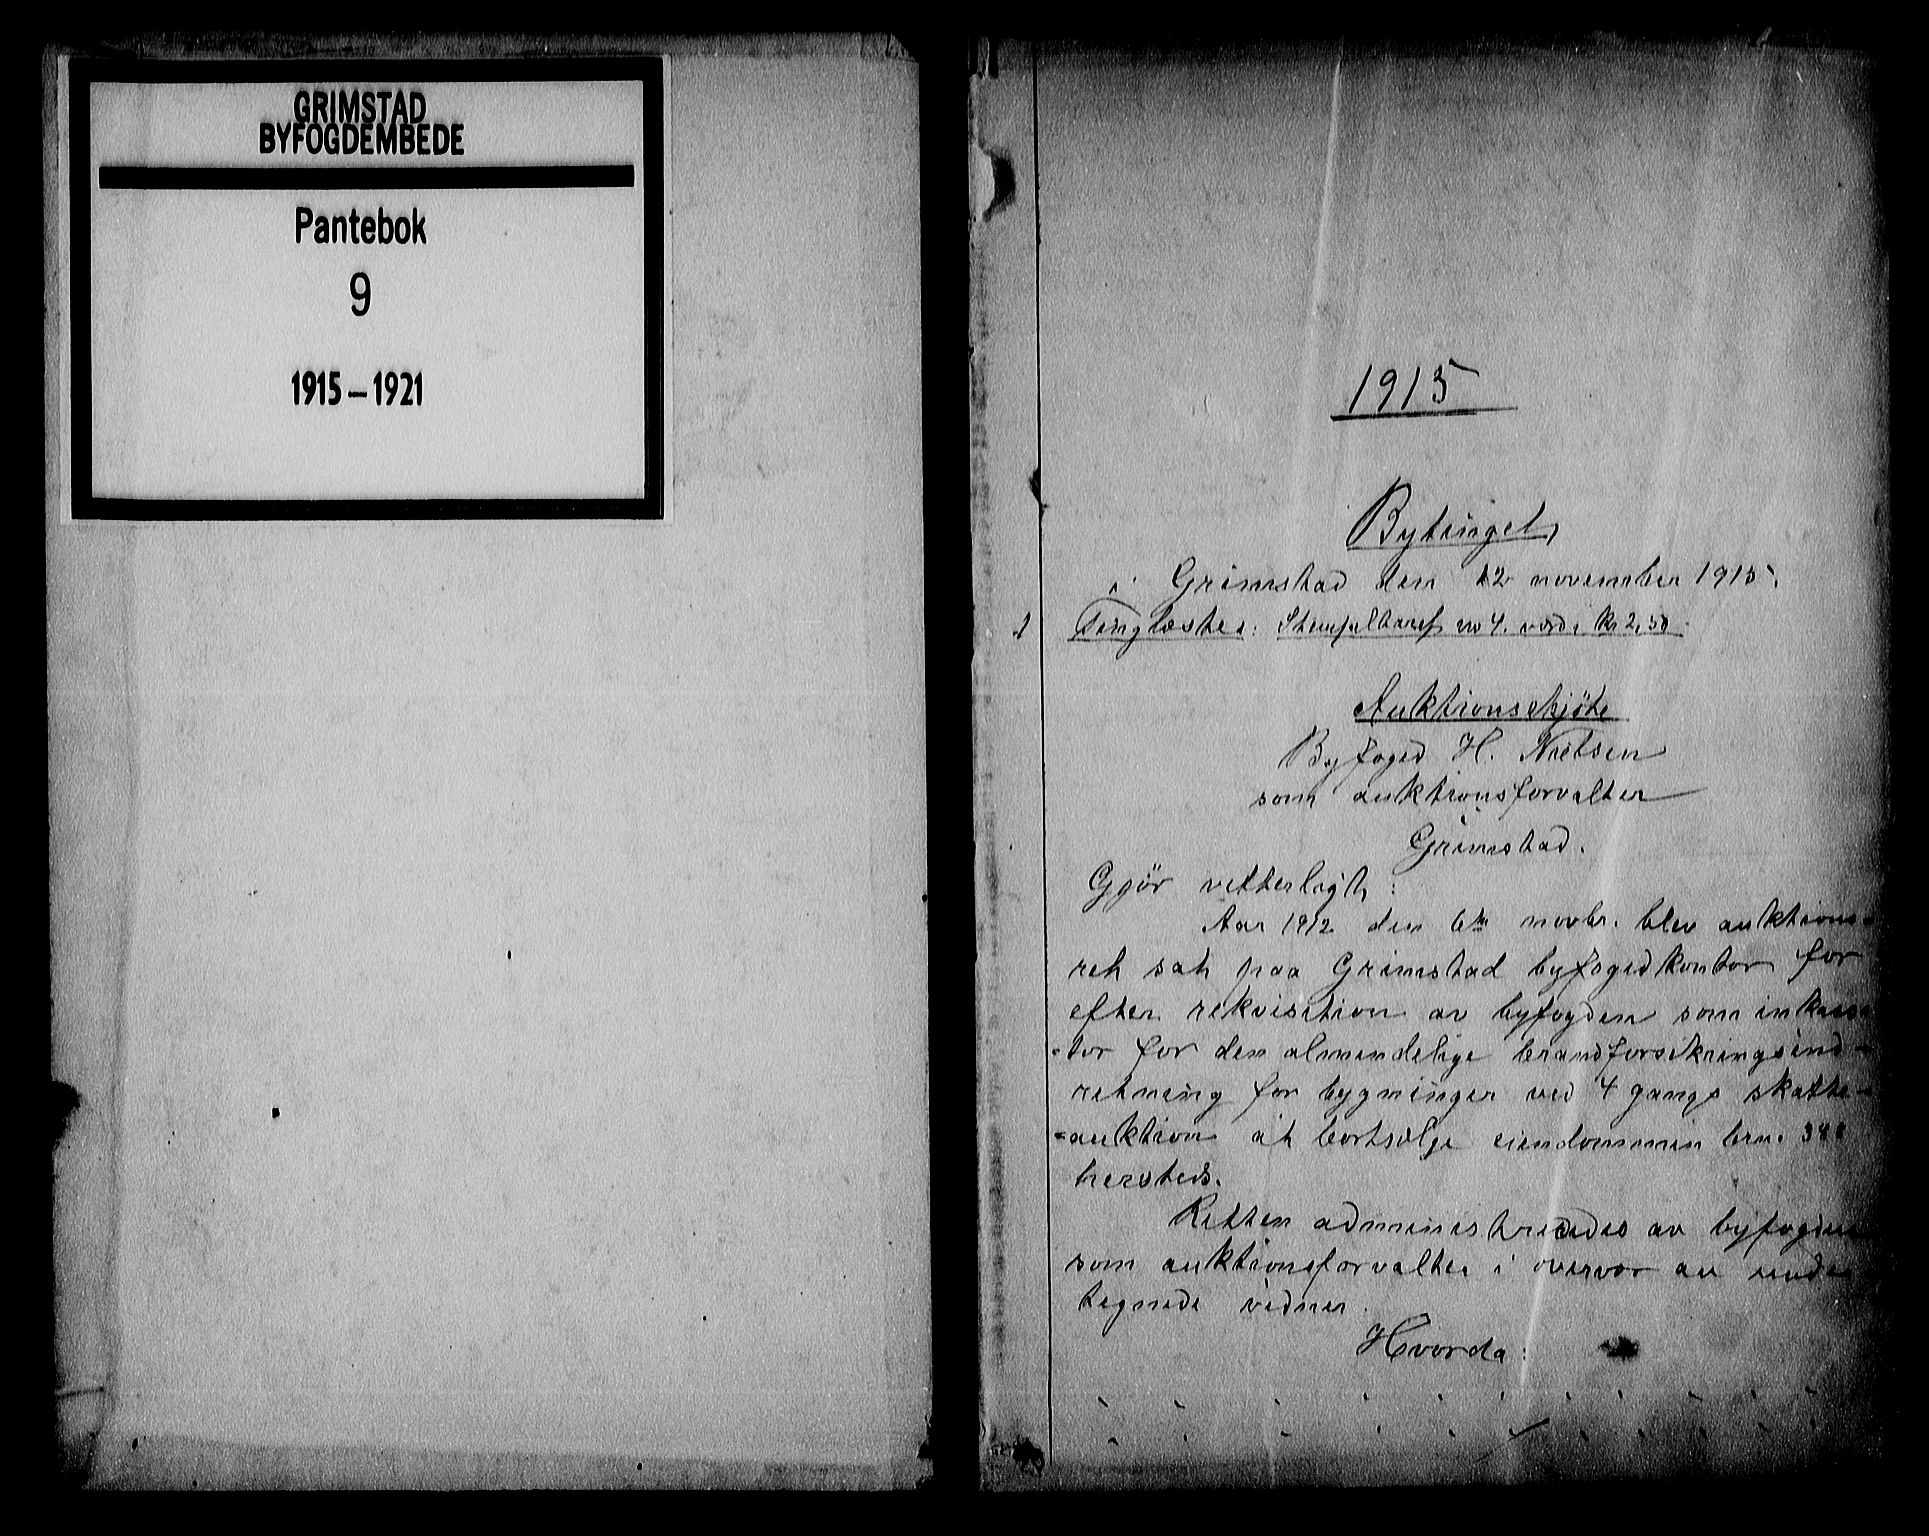 GRIMSTAD
BYFOGDEMBEDE
Pantebok
9
1915-1921
1915
Bytinget,
i Grimstad den 12 november 1915.
1 Tinglæstes: Stempeltaxt no 4. værdi kr 2,50.
Auktionsskjöte
Byfoged H. Nielsen
som auktionsforvalter
Grimstad.
Gjör vitterligt:
Aar 1912 den 6te novbr. blev auktions-
ret sat paa Grimstad byfogedkontor for
efter rekvisition av byfogden som inkasso-
-tor for den almindelige brandforsikringsind-
retning for bygninger ved 4 gangs skatte-
-auktion at bortsælge eiendommen brn. 388
hersteds.
Retten administreredes av byfogden
som auktionsforvalter i overvær av under
tegnede vidner.
Hvorda: